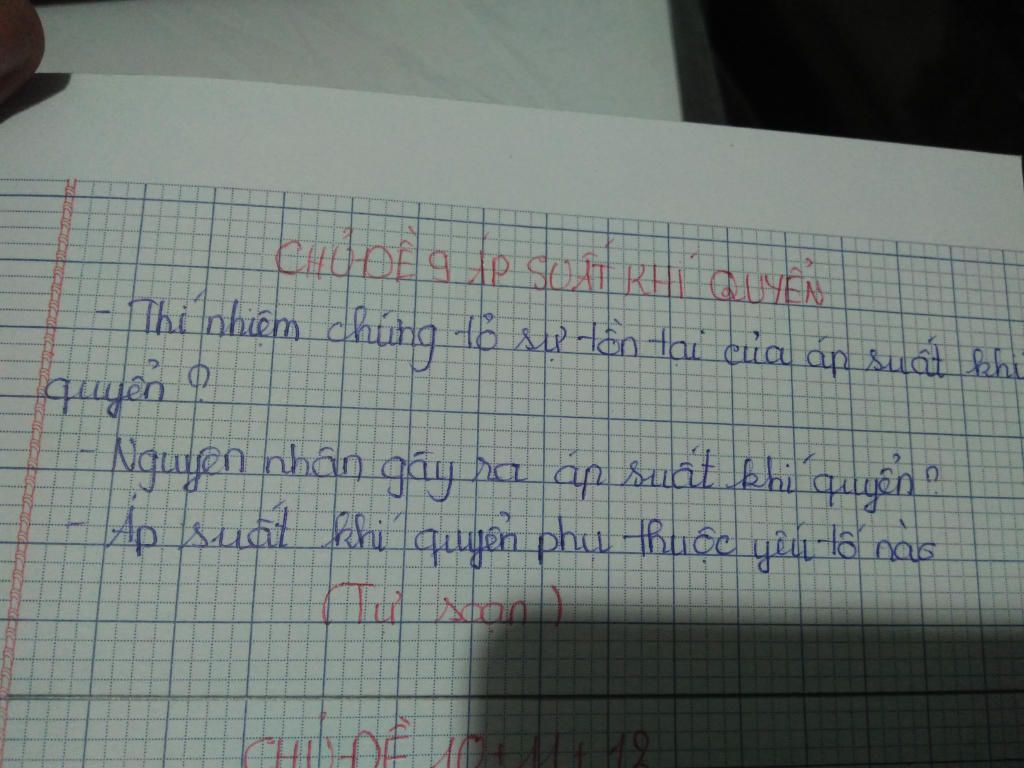 CHỦ ĐỀ 9 ÁP SUẤT KHÍ QUYỂN
- Thí nhiệm chúng tỏ sự tồn tại của áp suất khí
quyển ?
- Nguyên nhân gây ra áp suất khí quyển?
- Áp suất khí quyển phụ thuộc yếu tố nào
(Tự soạn)
CHỦ ĐỀ 10 + 11 + 12